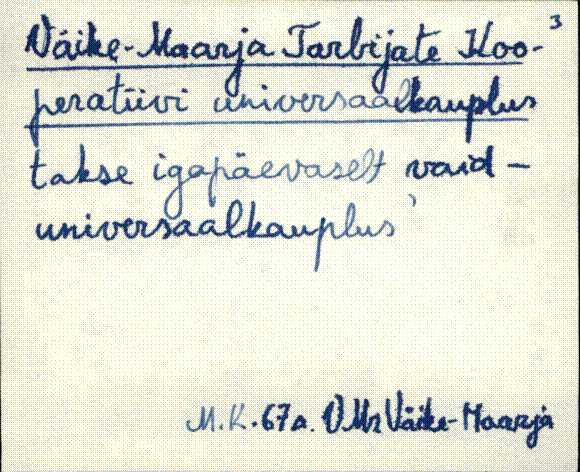 3
Väike-Maarja Tarbijate Koo-
peratiivi universaalkauplus
takse igapäevaselt vaid -
universaalkauplus'
M.K. 67a. VMr Väike-Maarja